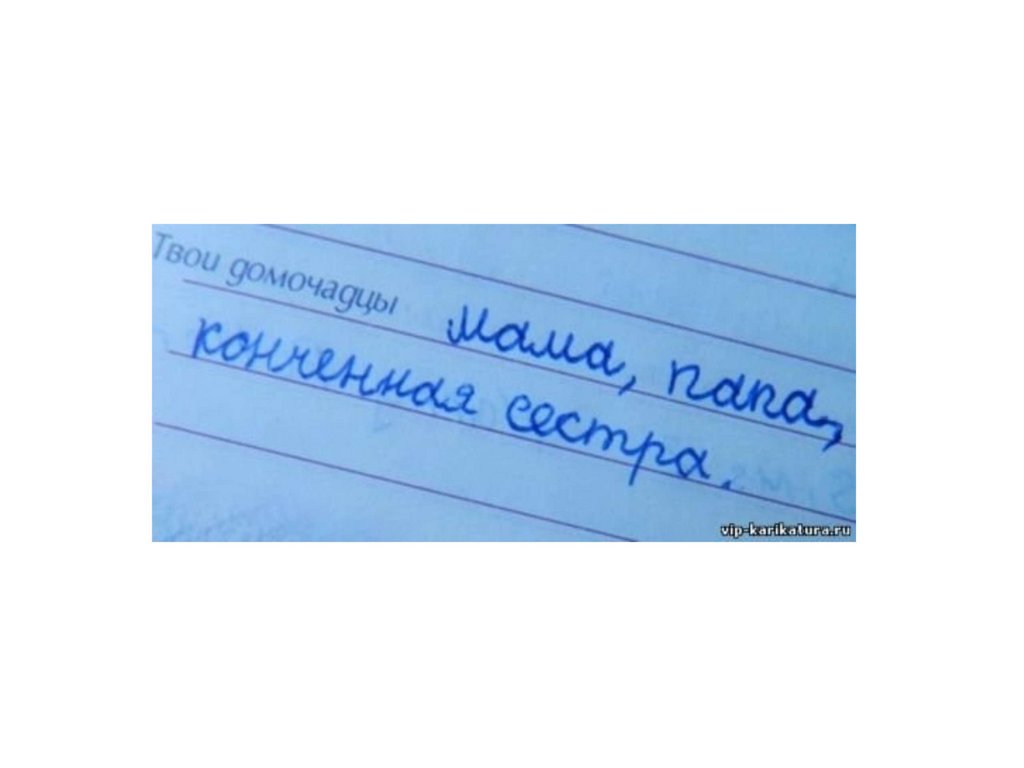 Твои домочадцы мама, папа,
конченная сестра.
vip-karikatura.ru